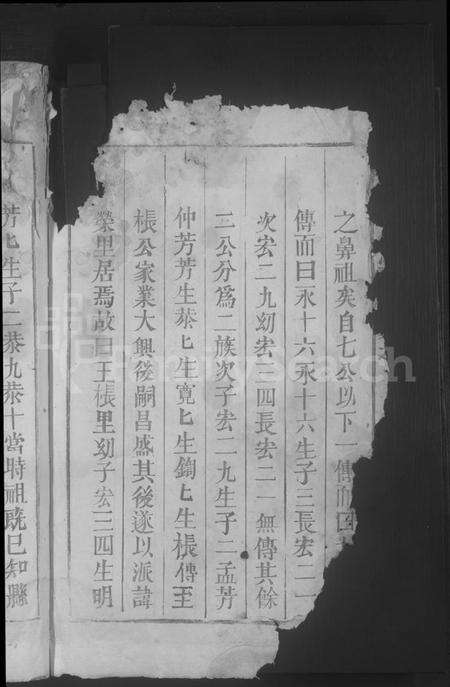 之鼻祖矣自七公以下一傳而曰
傳而曰永十六永十六生子三長宏二一
次宏二九幼宏三四長宏二一無傳其餘
二公分為二族次子宏二九生子二孟芳
仲芳芳生恭匕生寬匕生鉤匕生棖傳至
棖公家業大興後嗣昌盛其後遂以派諱
榮里居焉故曰王棖里幼子宏三四生明
芳匕生子二恭九恭十當時祖既已知縣
FamilySearch